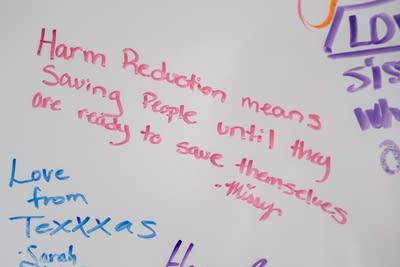 Harm Reduction means
Saving People until they
are ready to save themselves
-Missy
Love
from
Texxxas
Sarah